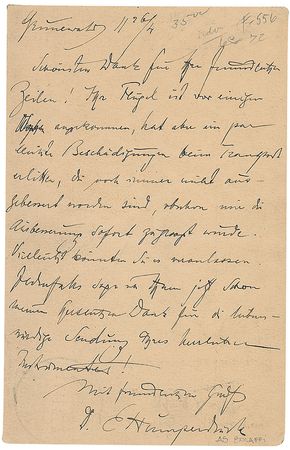 Grunewald, 11 26/4 35.00 K 556
72
Schönsten Dank für Ihre freundlichen
Zeilen! Ihr Flügel ist vor einigen
Tagen angekommen, hat aber ein paar
leichte Beschädigungen beim Transport
erlitten, die noch immer nicht aus-
gebessert worden sind, obschon mir die
Ausbesserung sofort zugesagt wurde.
Vielleicht könnten Sie es veranlassen.
Jedenfalls sage ich Ihnen jetzt schon
meinen herzlichen Dank für die liebens-
würdige Sendung Ihres herrlichen
Instrumentes!
Mit freundlichem Gruß
Dr. E Humperdinck
AS